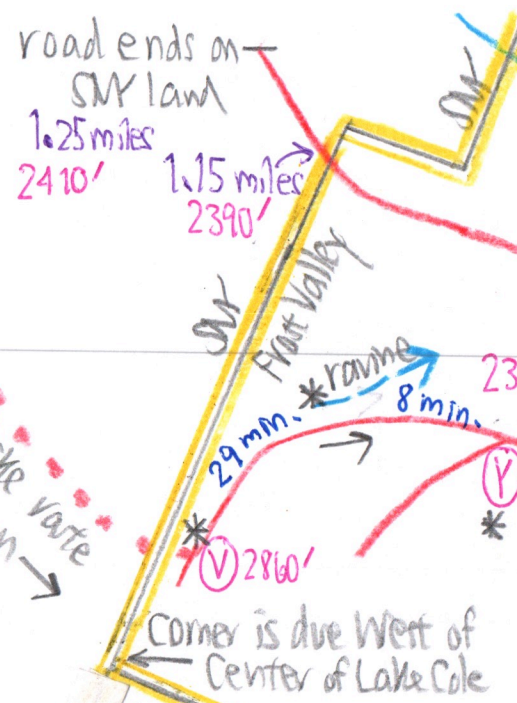 road ends on
SNY land
1.25 miles
2410'
1.15 miles
2390'
SNY
SNY
Frost Valley
ravine
23
29 min.
8 min.
Y
V 2860'
Corner is due West of
Center of Lake Cole